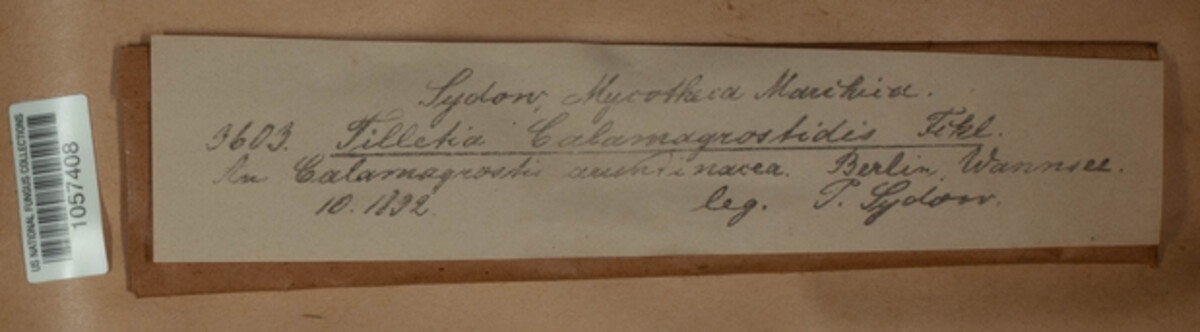 US NATIONAL FUNGUS COLLECTIONS
1057408
Sydow, Mycotheca Marchica.
3603. Tilletia Calamagrostidis Fckl.
An Calamagrostis arundinacea. Berlin, Wannsee.
10. 1892. leg. P. Sydow.